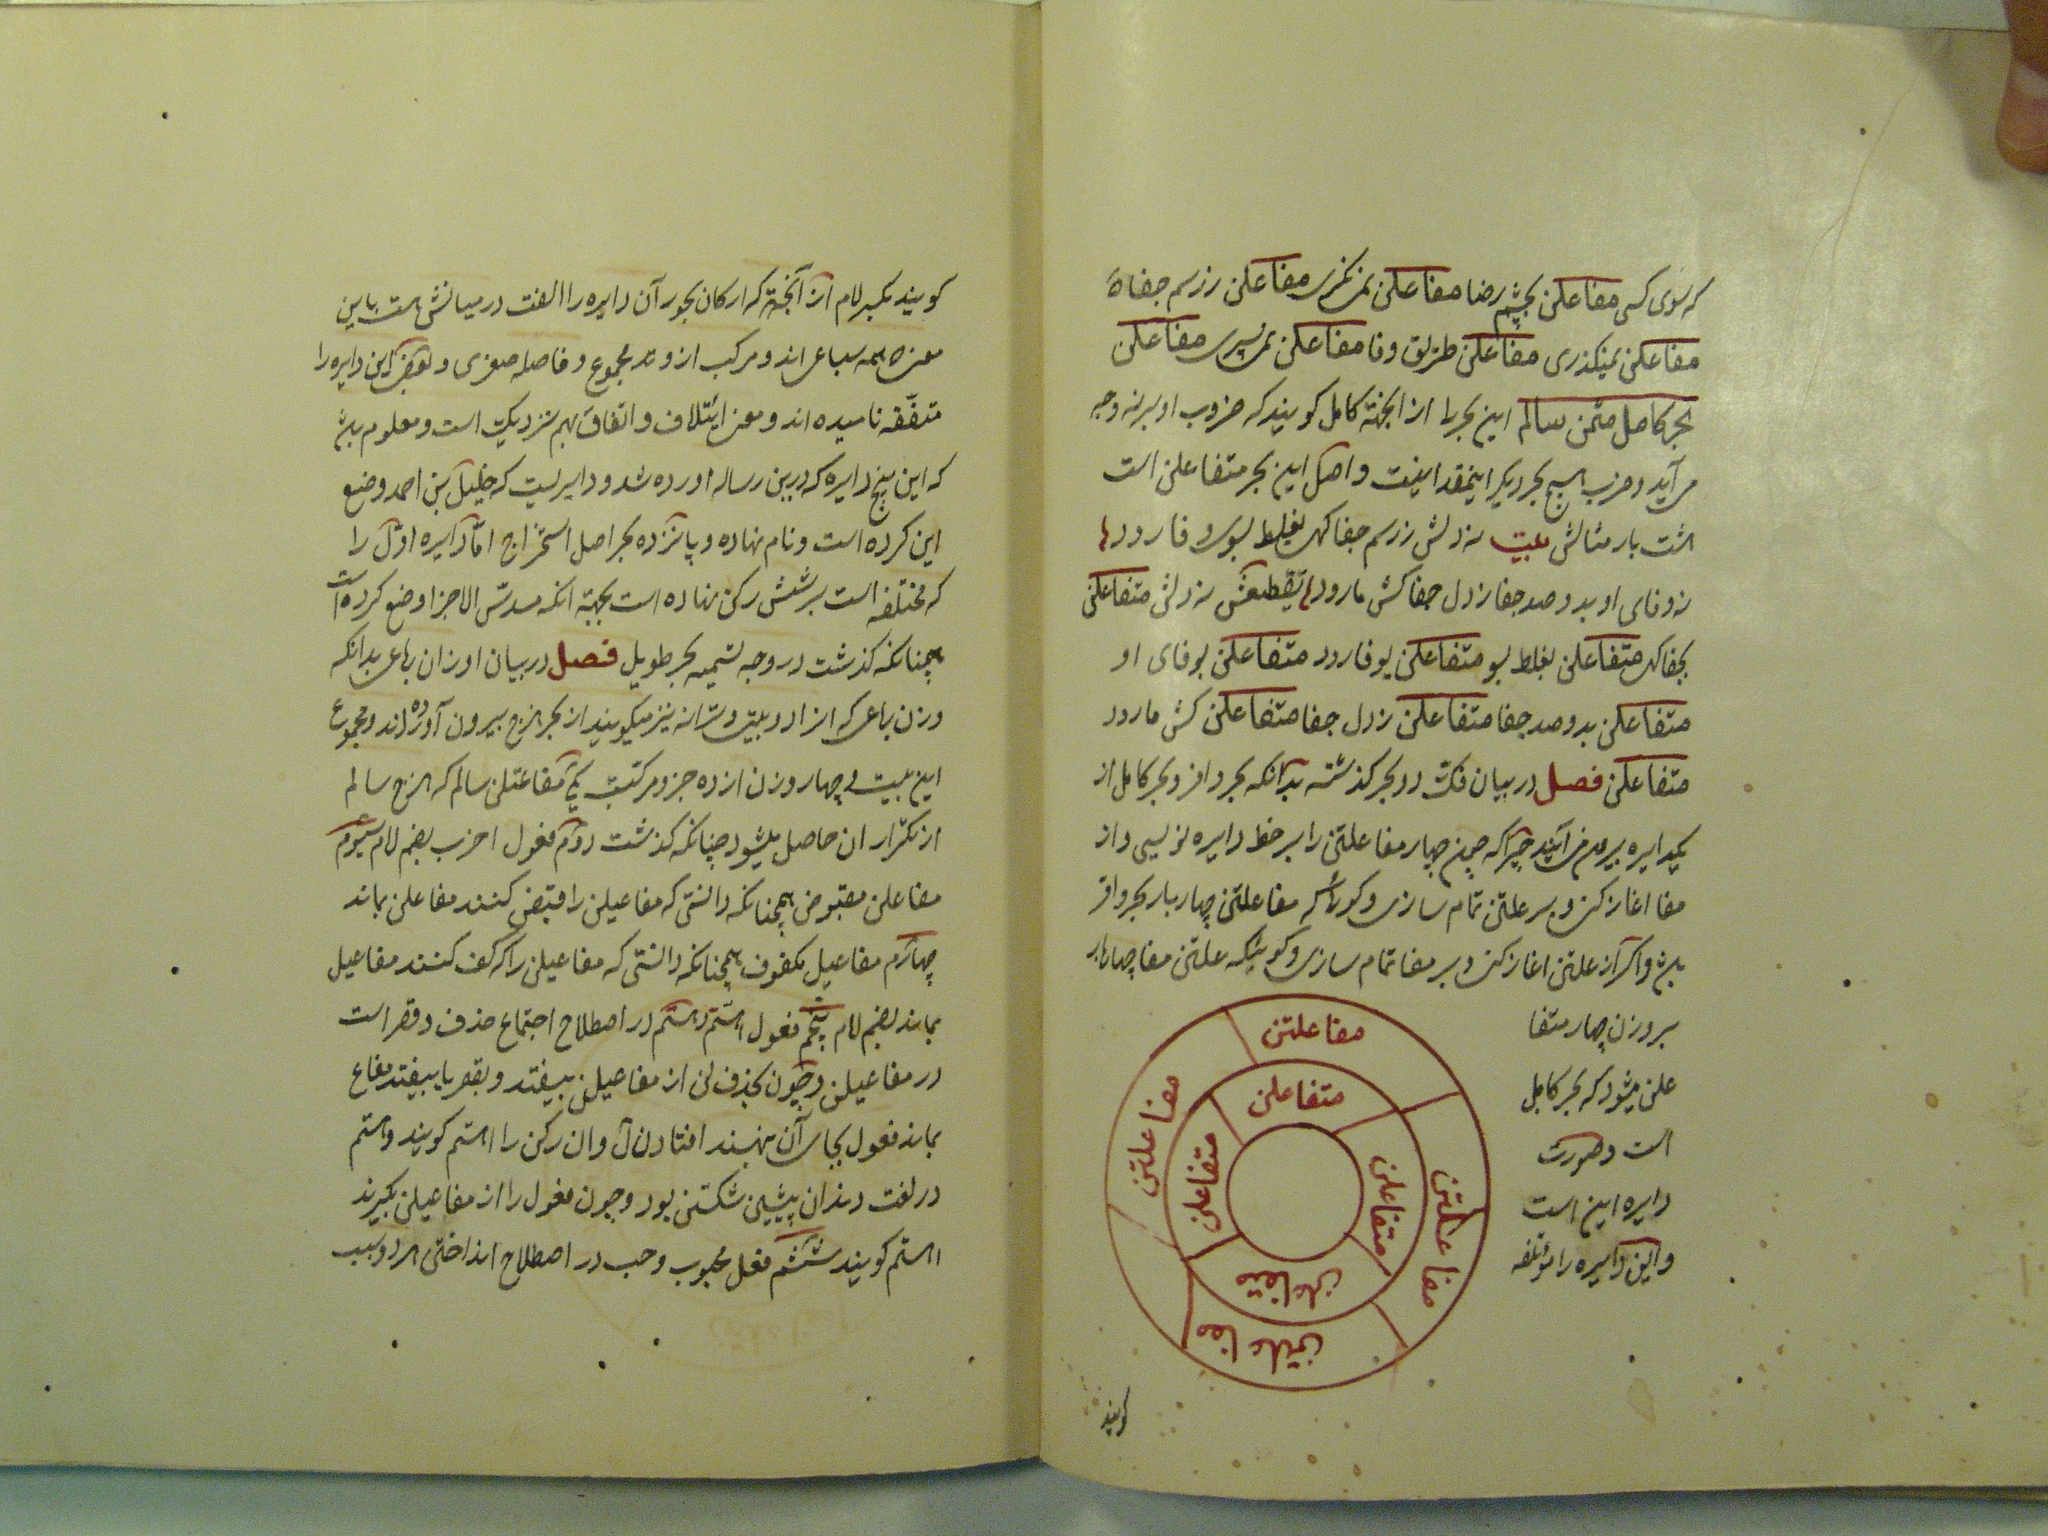 که سوی کسی مفاعلتن بچشم رضا مفاعلتن نمی‌نگری مفاعلتن ز رسم جفا
مفاعلتن نمیگذری مفاعلتن طریق وفا مفاعلتن نمی‌سپری مفاعلتن
بحر کامل مثمن سالم این بحر را از آنجهة کامل کویند که ضروب او بر نه وجه
می‌آید و ضرب هیچ بحر دیکر اینمقدار نیست و اصل این بحر متفاعلن است
هشت بار مثالش بیت نه دلش ز رسم جفا کهی بغلط بسوی وفا رود
نه وفای او بدو صد جفا ز دل جفاکش ما رود تقطیعش نه دلش متفاعلن
جفا کهی متفاعلن بغلط بسو متفاعلن یوفا رود متفاعلن بوفای او
متفاعلن بدو صد جفا متفاعلن ز دل جفا متفاعلن کش ما رود
متفاعلن فصل در بیان فک دو بحر کذشته بدانکه بحر وافر و بحر کامل از
یکدایره بیرون می‌آیند چرا که چون چهار مفاعلتن را بر خط دایره نویسی و از
مفا اغاز کنی و بر علتن تمام سازی و کویی که مفاعلتن چهار بار بحر وافر
باشد و اکر از علتن اغاز کنی و بر مفا تمام سازی و کویی که علتن مفا چهار بار
بر وزن چهار متفا
علن میشود که بحر کامل
است و صورت
دایره این است
و این دایره را مؤتلفه
مفاعلتن
مفاعلتن
مفاعلتن
مفاعلتن
متفاعلن
متفاعلن
متفاعلن
متفاعلن
کویند
کویند بکسر لام از آنجهة که ارکان بحور آن دایره را الفت در میانش هست باین
معنی که همه سباعی‌اند و مرکب از وتد مجموع و فاصله صغری و بعضی این دایره را
متفقه نامیده‌اند و معنی ایتلاف و اتفاق بهم نزدیک است و معلوم باشد
که این پنج دایره که درین رساله اورده شد دوایریست که خلیل بن احمد وضع
این کرده است و نام نهاده و پانزده بحر اصل استخراج اما دایره اول را
که مختلفه است بر شش رکن نهاده است بجهة انکه مسدس الاجزا وضع کرده است
همچنانکه کذشت در وجه تسمیه بحر طویل فصل در بیان اوزان رباعی بدانکه
وزن رباعی که انرا دوبیتی و ترانه نیز میکویند از بحر هزج بیرون آورده‌اند و مجموع
این بیست و چهار وزن از ده جزو مرکبست یکی مفاعیلن سالم که هزج سالم
از تکرار ان حاصل میشود چنانکه کذشت دوم مفعول اخرب بضم لام سیوم
مفاعلن مقبوض همچنانکه دانستی که مفاعیلن را قبض کنند مفاعلن بماند
چهارم مفاعیل مکفوف همچنانکه دانستی که مفاعیلن را کف کنند مفاعیل
بماند بضم لام پنجم فعول اهتم و هتم در اصطلاح اجتماع حذف و قصر است
در مفاعیلن و چون بحذف لن از مفاعیلن بیفتد و بقصر یا بیفتد مفاع
بماند فعول بجای آن نهند افتادن ل و ان رکن را اهتم کویند و هتم
در لغت دندان پیشین شکستن بود و چون فعول را از مفاعیلن بکیرند
اهتم کویند ششم فعل مجبوب و جب در اصطلاح انداختن هر دو سبب